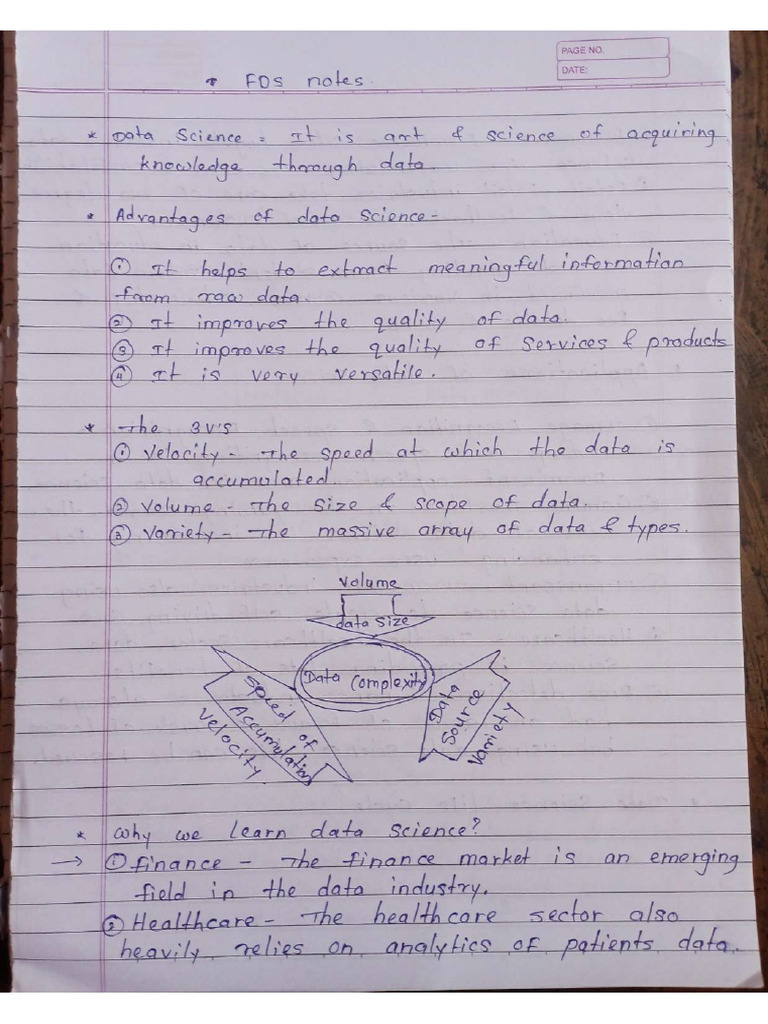 PAGE NO.
DATE:
• FDS notes.
* Data Science = It is art & science of acquiring
knowledge through data.
* Advantages of data Science-
① It helps to extract meaningful information
from raw data.
② It improves the quality of data.
③ It improves the quality of services & products
④ It is very versatile.
* The 3V's
① Velocity - The speed at which the data is
accumulated.
② Volume - The size & scope of data.
③ Variety - The massive array of data & types.
Volume
data size
Data Complexity
Speed of
Accumulation
Velocity
Data
Source
Variety
* Why we learn data science?
→ ① Finance - The finance market is an emerging
field in the data industry.
② Healthcare - The healthcare sector also
heavily relies on analytics of patients data.